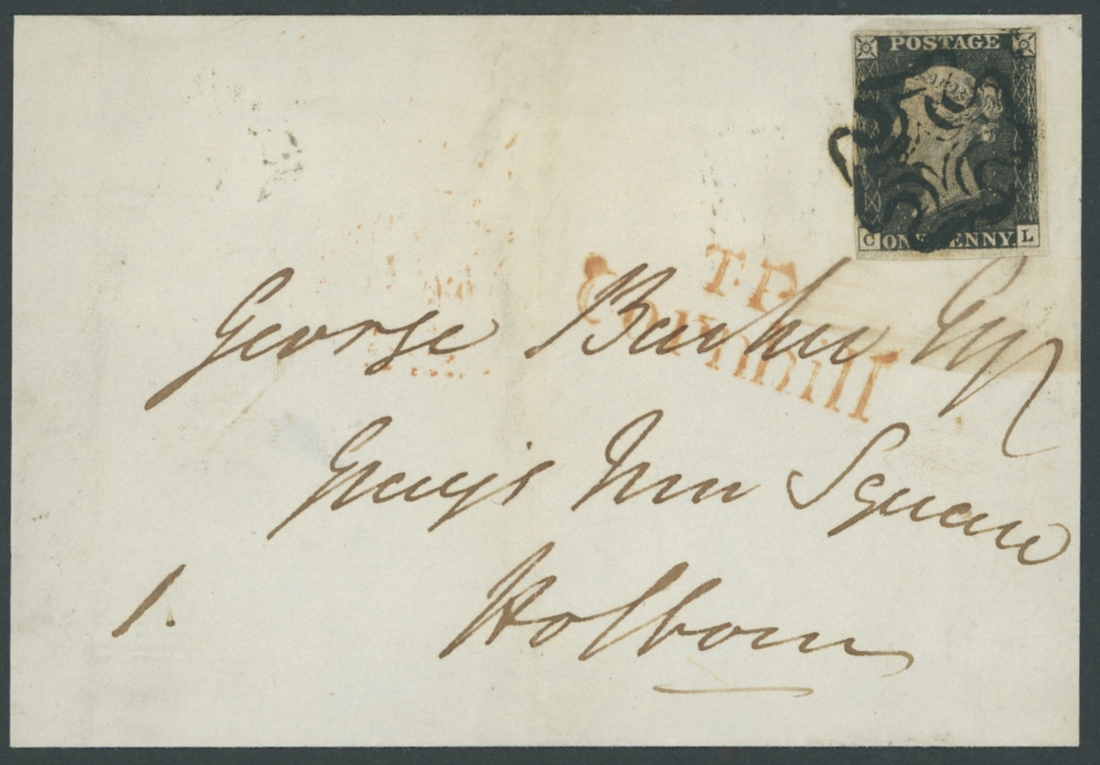 POSTAGE
C ONE PENNY L
T.P
Cornhill
George Barker Esqr
Grays Inn Square
Holborn
1.